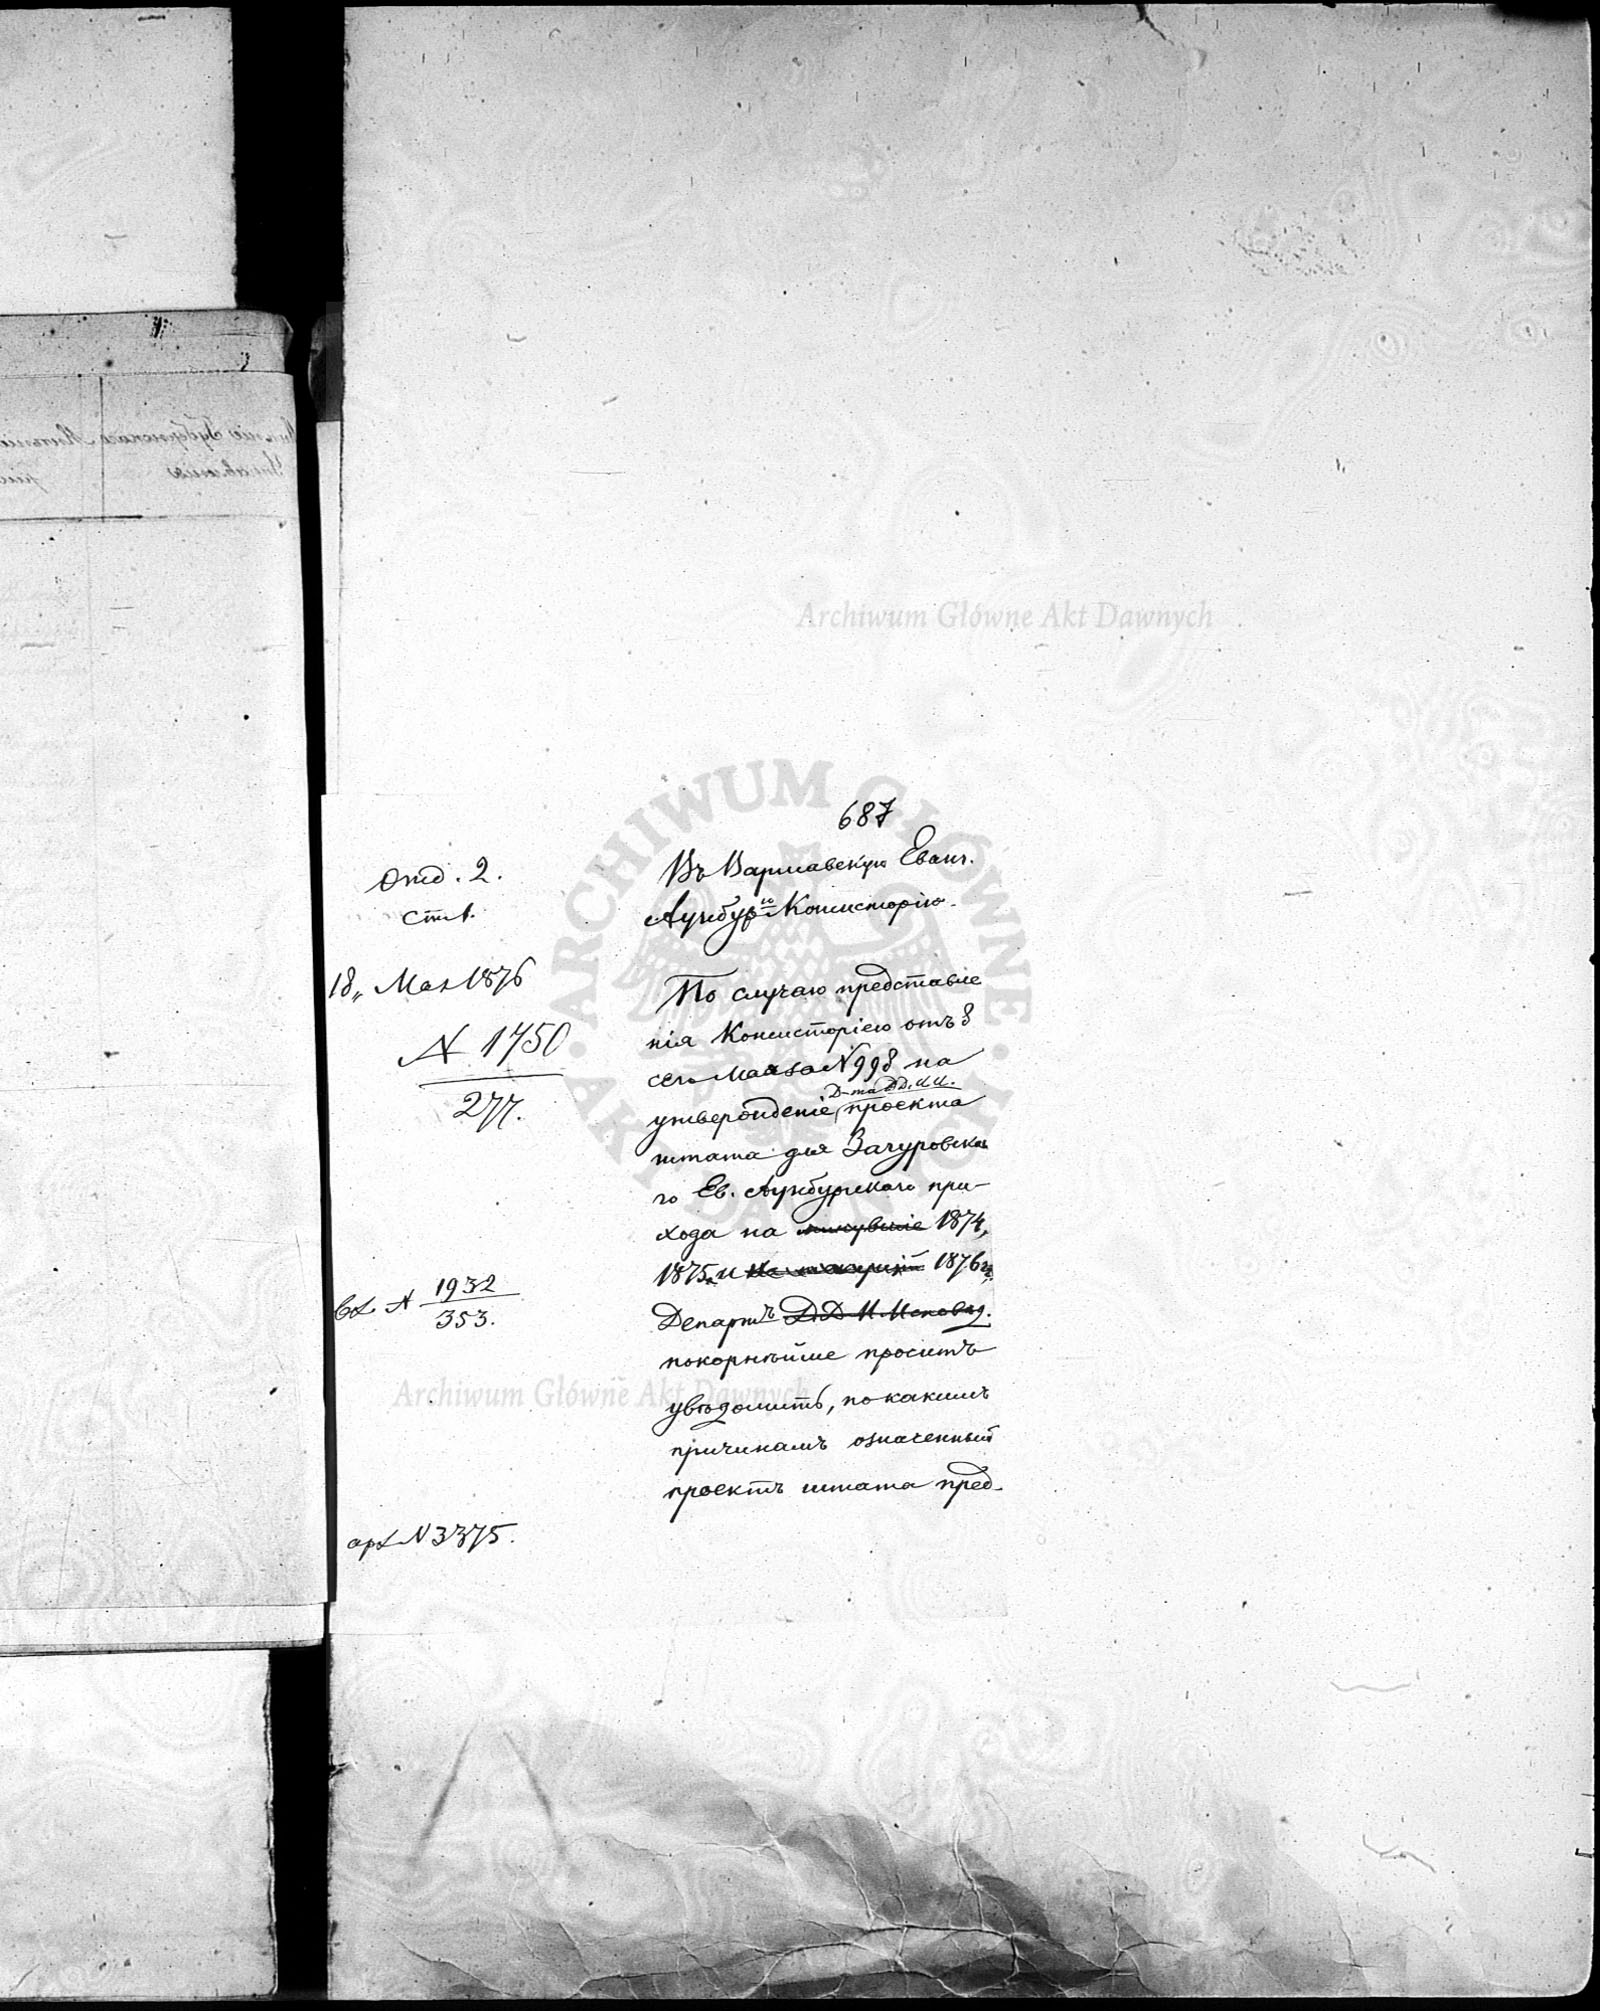 687
Отд. 2.
Ст. 1.
18 „ Мая 1876
N 1750
277.
вх N 1932
353.
арх N 3375.
Въ Варшавскую Еванг.
Аугсбур ую Консисторію.
По случаю представле
нія Консисторіею отъ 8
сего Мая за N 998 на
утвержденіе Д-та Д.Д. И.И. проекта
штата для Загуровска
го Ев. Аугсбургскаго при-
хода на минувшіе 1874,
1875, и на текущій 1876 гг.
Департъ Д.Д. И. Исповѣд.
покорнѣйше проситъ
увѣдомить, по какимъ
причинамъ означенный
проектъ штата пред-
Archiwum Główne Akt Dawnych
Archiwum Główne Akt Dawnych
ARCHIWUM GŁÓWNE AKT DAWNYCH